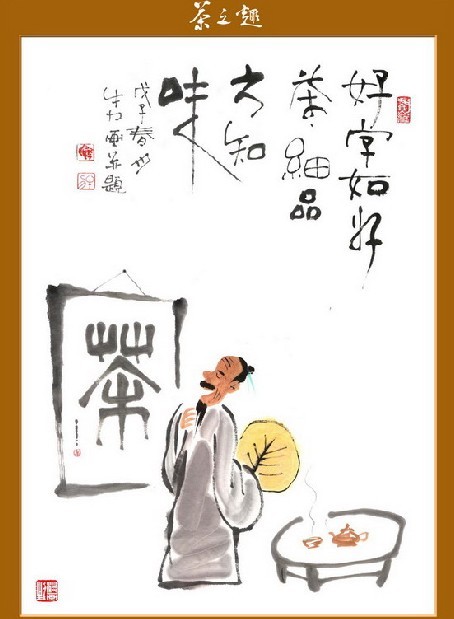 茶之趣
好字如好
茶細品
方知
味
戊子春
画并題
茶